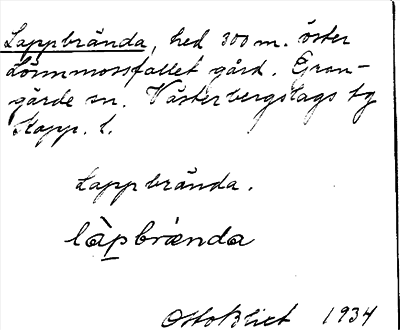 Lappbrända, hed 300 m. öster
Lömmossfallet gård. Gran-
gärde sn. Västerbergslags tg
Kopp. l.
Lappbrända.
làpbrända
Otto Blixt 1934